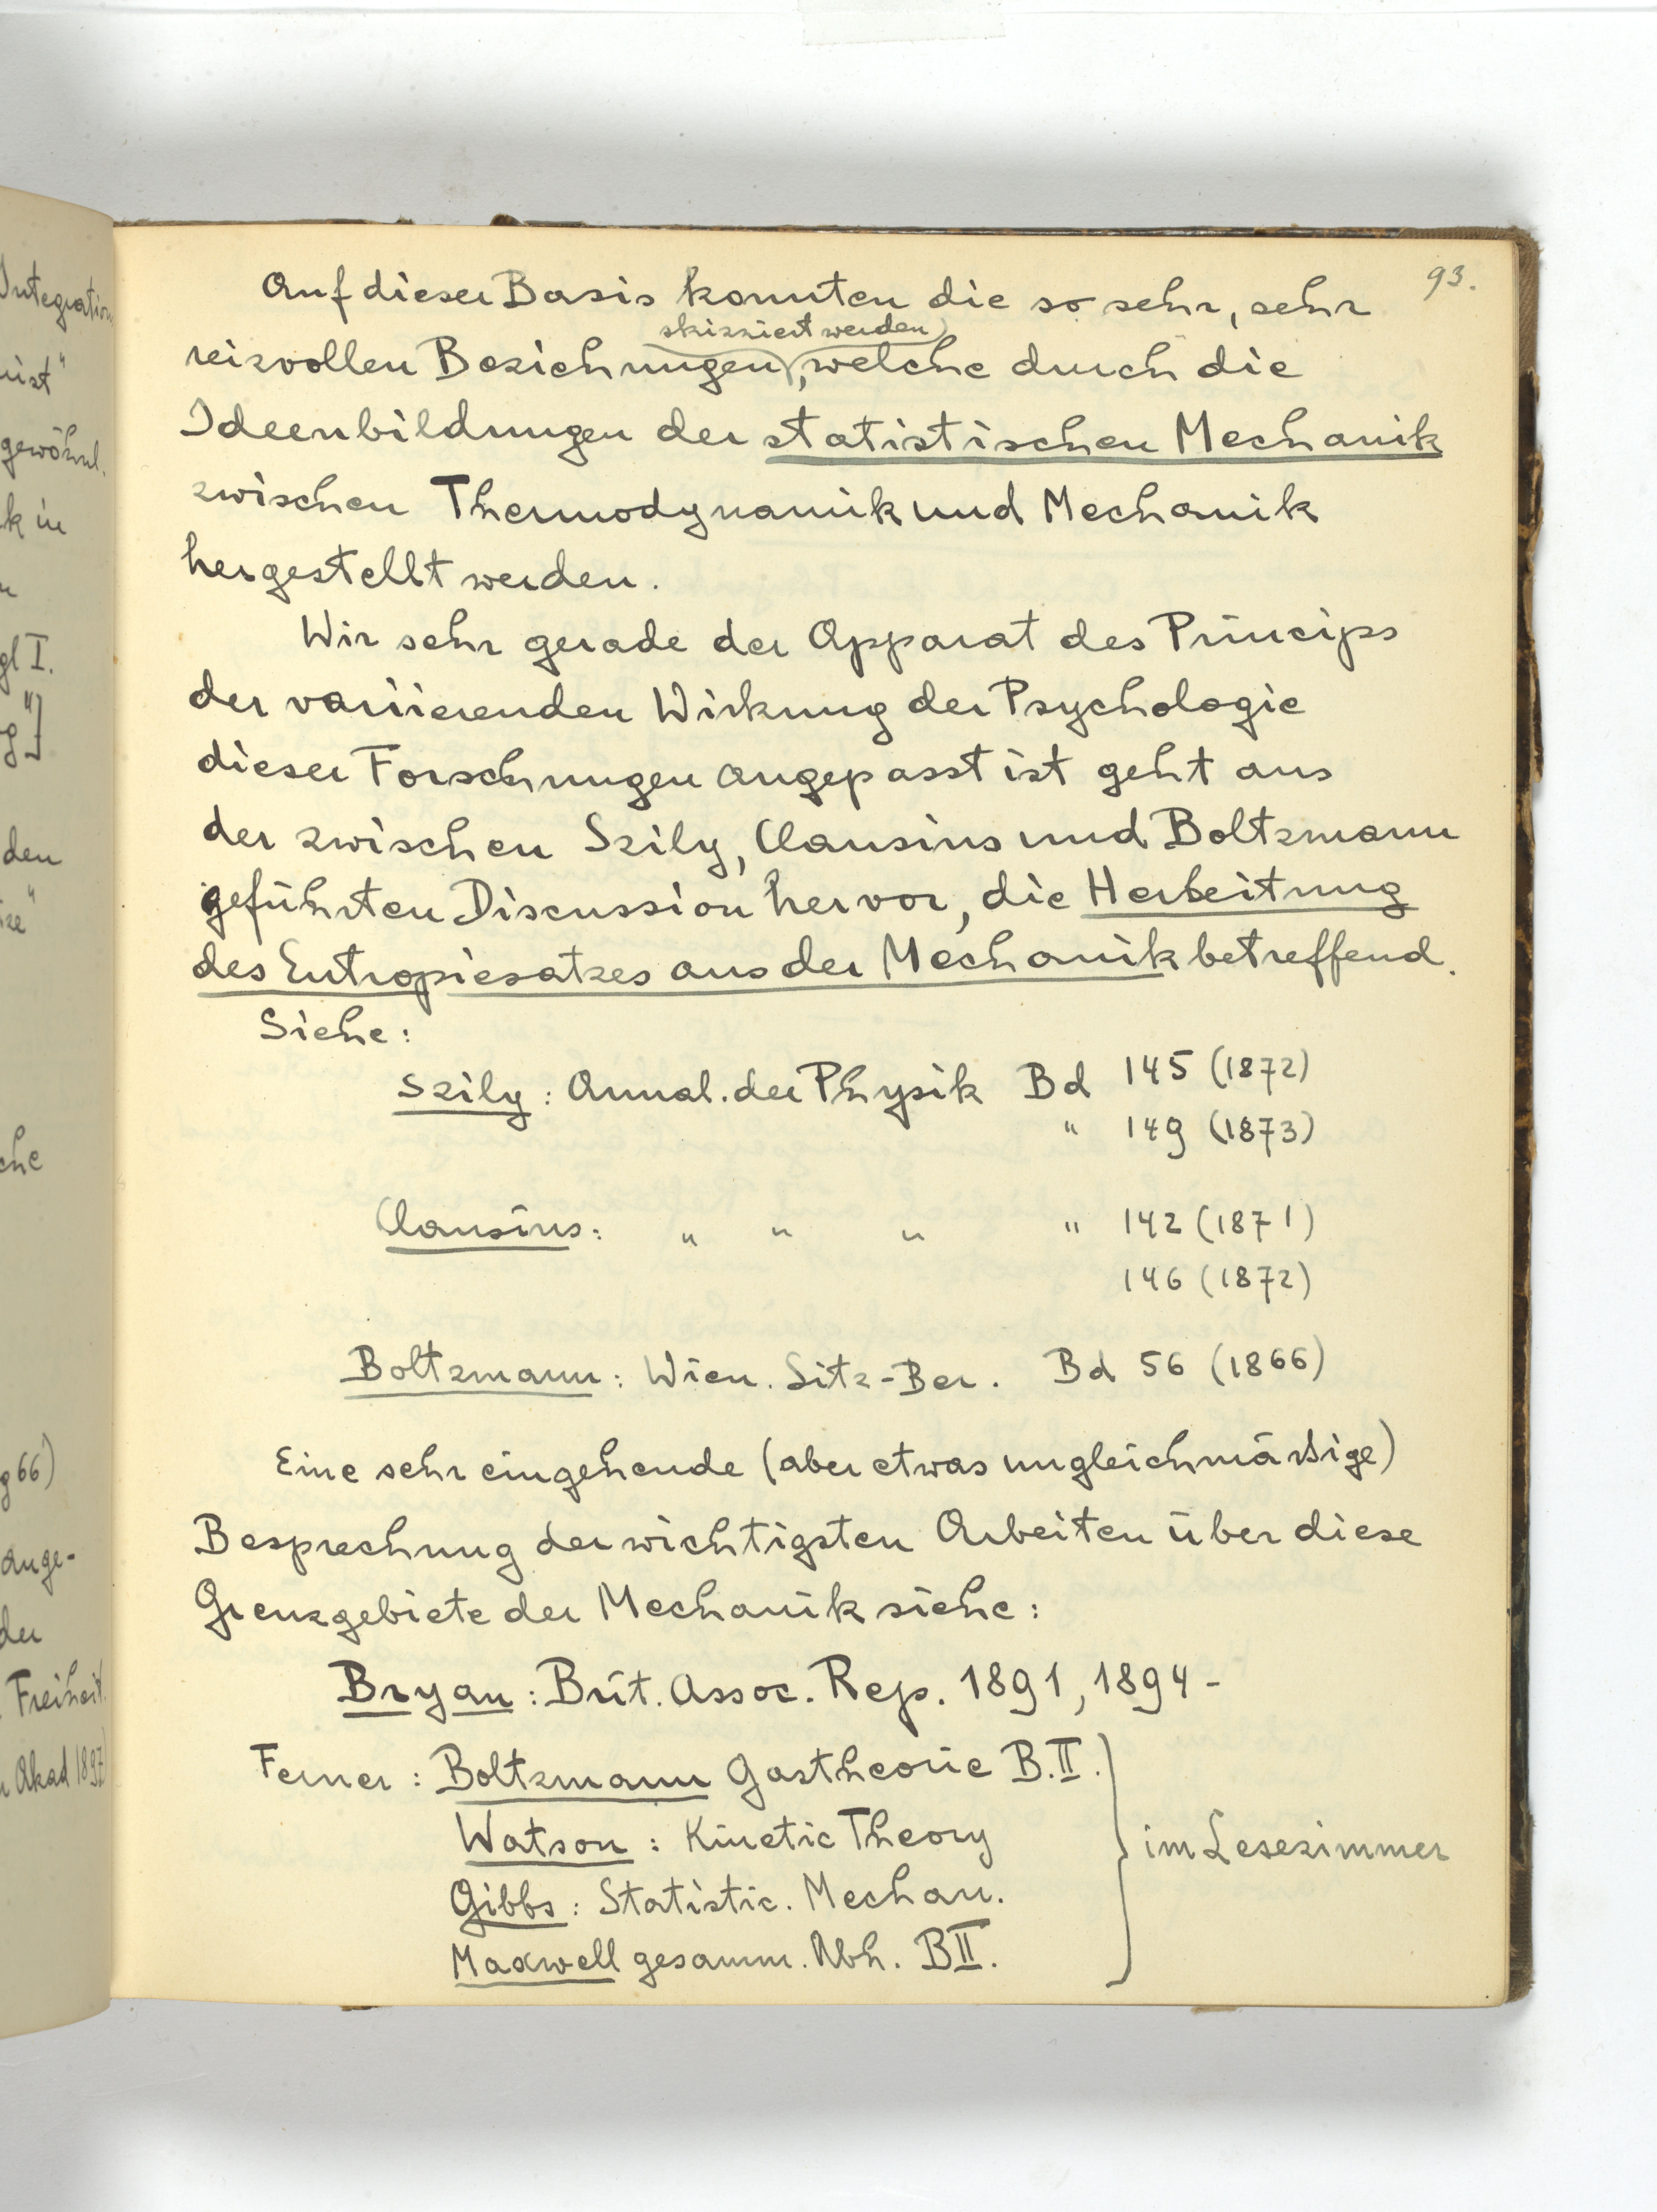 93.
Auf dieser Basis konnten die so sehr, sehr
skizziert werden
reizvollen Beziehnungen, welche durch die
Ideenbildungen der statistischen Mechanik
zwischen Thermodynamik und Mechanik
hergestellt werden.
Wir sehr gerade der Apparat des Princips
der variierenden Wirkung der Psychologie
dieser Forschungen angepasst ist geht aus
der zwischen Szily, Clausius und Boltzmann
geführten Discussion hervor, die Herleitung
des Entropiesatzes aus der Mechanik betreffend.
Siehe:
Szily: Annal. der Physik Bd 145 (1872)
" 149 (1873)
Clausius: " " " " 142 (1871)
146 (1872)
Boltzmann: Wien. Sitz-Ber. Bd 56 (1866)
Eine sehr eingehende (aber etwas ungleichmäßige)
Besprechnung der wichtigsten Arbeiten über diese
Grenzgebiete der Mechanik siehe:
Bryan: Brit. Assoc. Rep. 1891, 1894-
Ferner: Boltzmann Gastheorie B. II.
Watson: Kinetic Theory
im Lesezimmer
Gibbs: Statistic. Mechan.
Maxwell gesamm. Abh. B II.
Integration
ist"
gewöhnl.
k in
gl I.
g"]
den
che
g 66)
ange-
der
Freiheit.
Akad 1897)